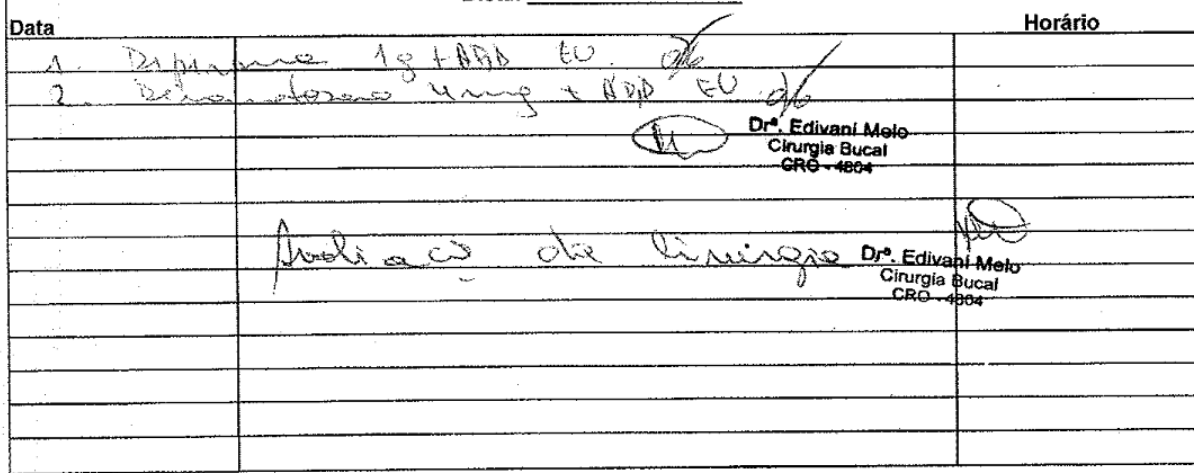 Data Horário
1. Dipirona 1g + ADD EV.
2. Dexametasona 4mg + ADD EV.
Drª. Edivani Melo
Cirurgia Bucal
CRO - 4804
Avaliação da Cirurgia
Drª. Edivani Melo
Cirurgia Bucal
CRO - 4804